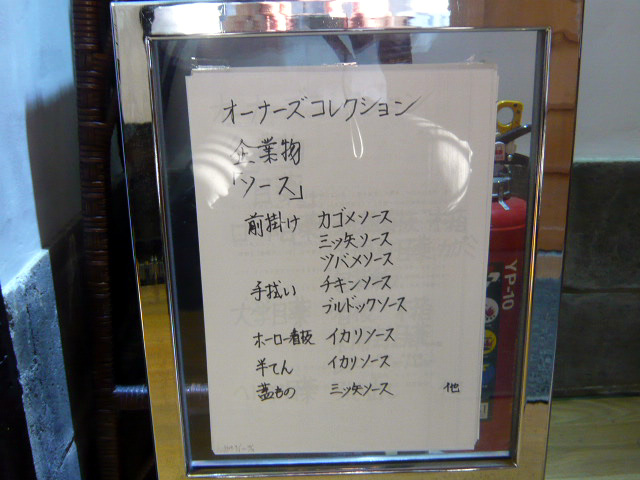 オーナーズコレクション
企業物
「ソース」
前掛け カゴメソース
三ッ矢ソース
ツバメソース
手拭い チキンソース
ブルドックソース
ホーロー看板 イカリソース
半てん イカリソース
蓋もの 三ッ矢ソース 他
YP-10